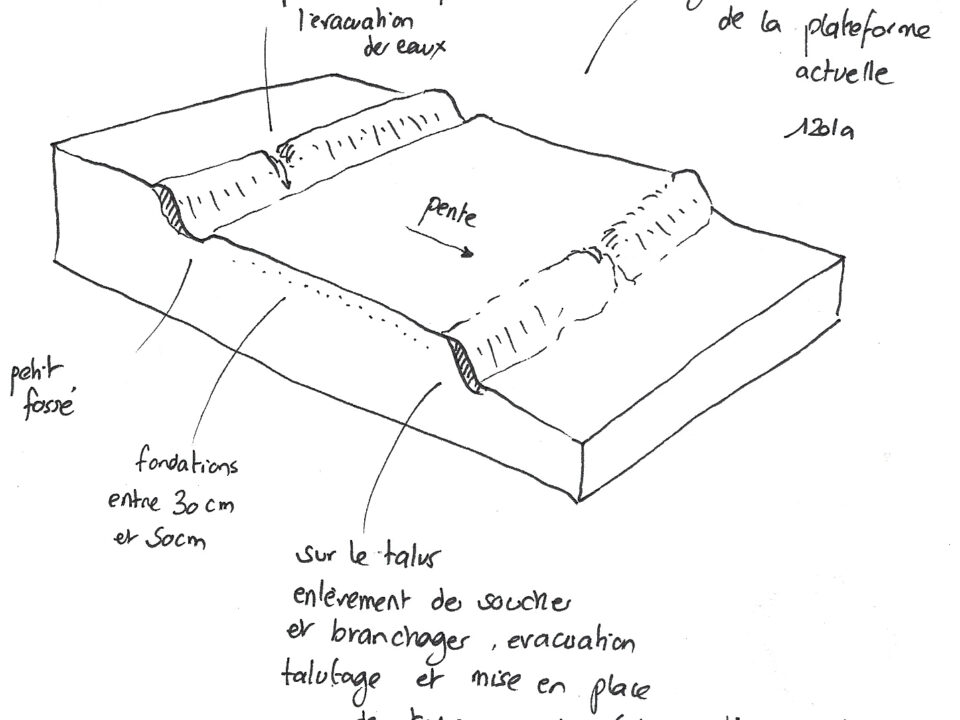 l'evacuation
des eaux
de la plateforme
actuelle
pente
petit
fossé
fondations
entre 30 cm
et 50cm
sur le talus
enlèvement de souches
et branchages, evacuation
talutage et mise en place